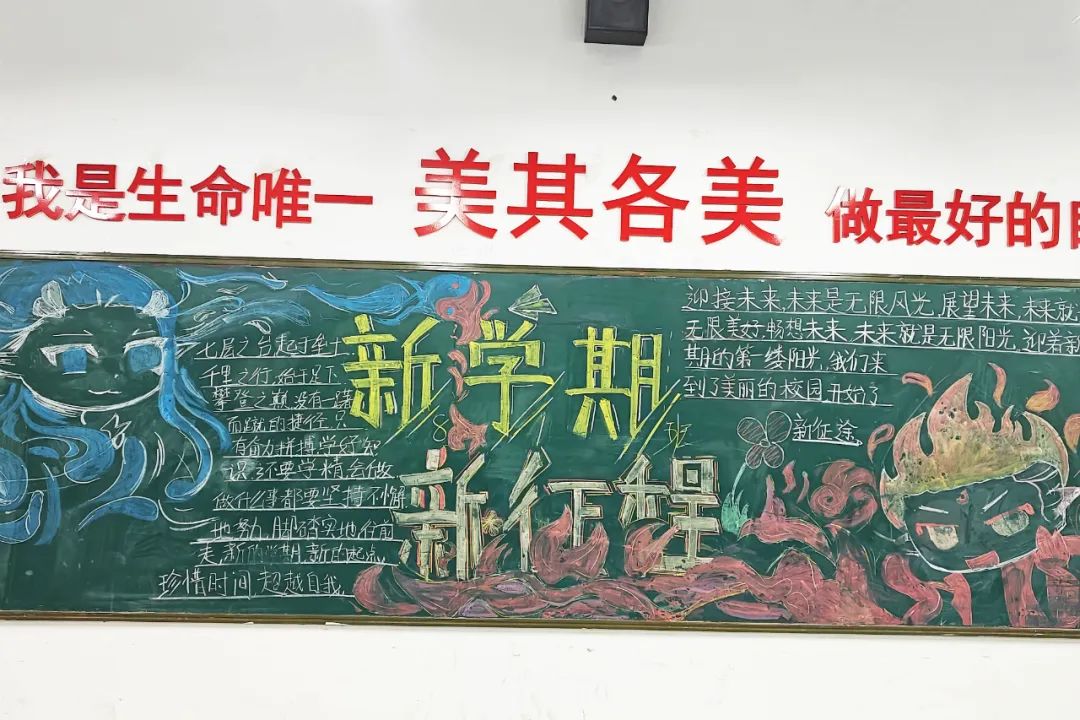 我是生命唯一 美其各美 做最好的自
七层之台起于垒土
千里之行,始于足下
攀登之巅,没有一蹴
而蹴的捷径,只
有奋力拼搏学好知
识,还要学精会做
做什么事都要坚持不懈
地努力,脚踏实地往前
走,新的学期,新的起点
珍惜时间 超越自我
新学期
8 班
新征程
迎接未来,未来是无限风光,展望未来,未来就
无限美好,畅想未来,未来就是无限阳光,迎着新
期的第一缕阳光,我们来
到了美丽的校园开始了
新征途